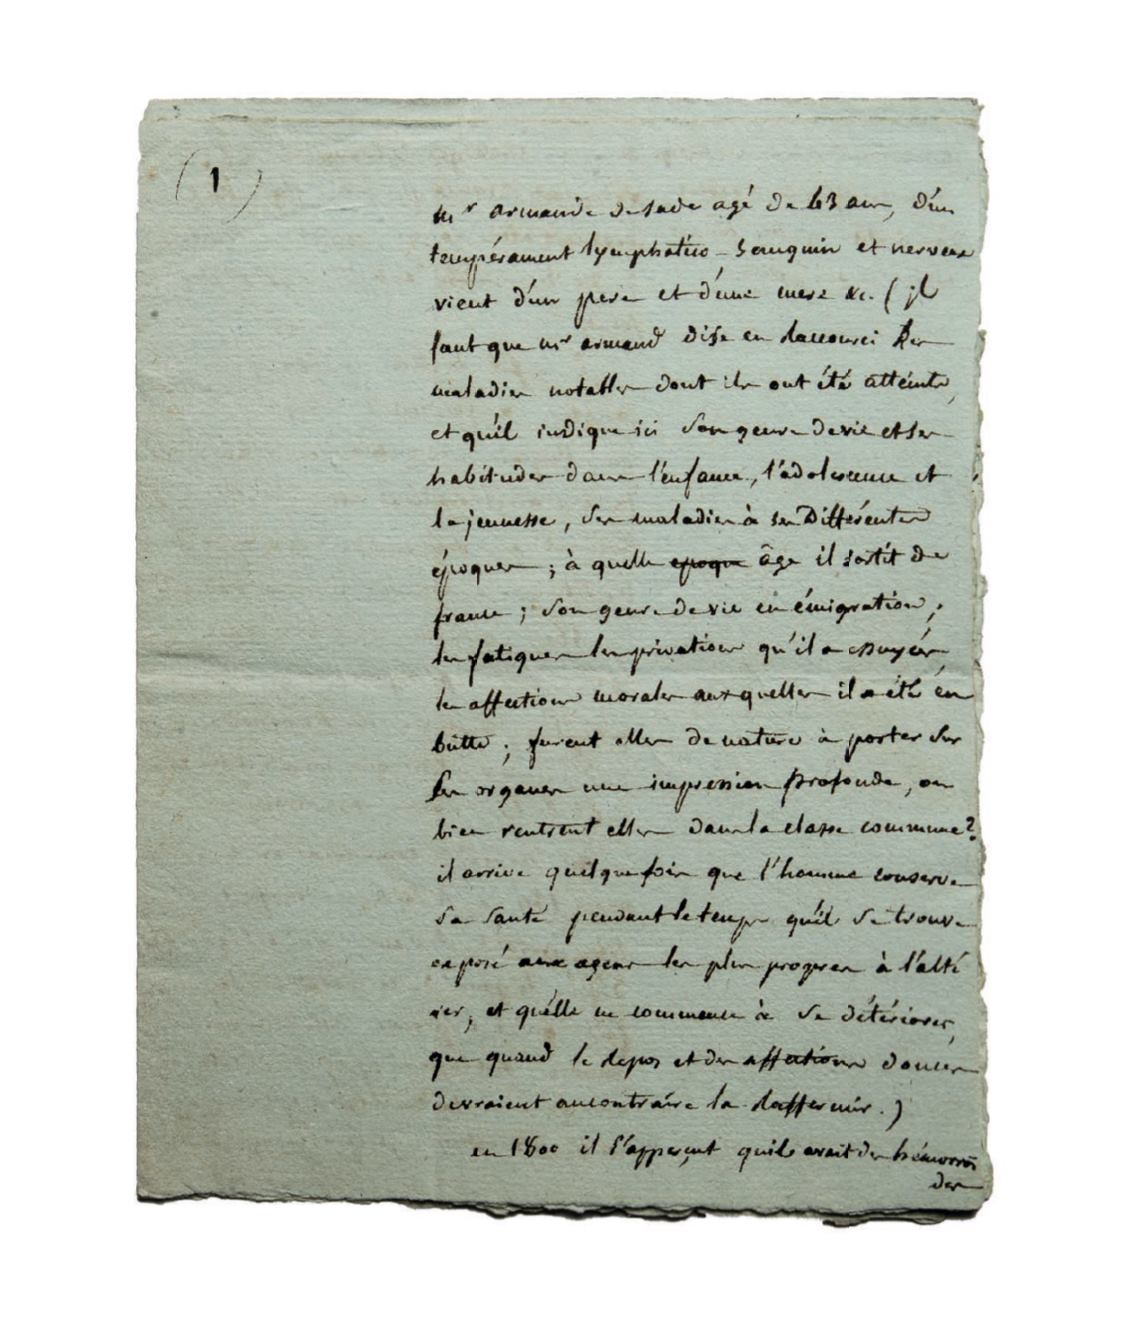 (1)
mr armande de sade agé de 63 ans, d'un
tempérament lymphatico-sanguin et nerveux
vient d'un pere et d'une mere &c. (jl
faut que mr armand dise en raccourci les
maladies notables dont ils ont été atteints,
et qu'il indique ici son genre de vie et ses
habitudes dans l'enfance, l'adolescence et
la jeunesse, ses maladies à ses différentes
époques ; à quelle epoque âge il sortit de
france ; son genre de vie en émigration,
les fatigues les privations qu'il a essuyées
les affections morales auxquelles il a été en
butte ; furent elles de nature à porter sur
les organes une impression profonde, ou
bien rentrent elles dans la classe commune?
il arrive quelquefois que l'homme conserve
sa santé pendant le temps qu'il se trouve
exposé aux agens les plus propres à l'alté
rer, et qu'elle ne commence à se détériorer,
que quand le repos et des affections douces
devraient aucontraire la raffermir.)
en 1800 il s'apperçut qu'il avait des hémorroï
des